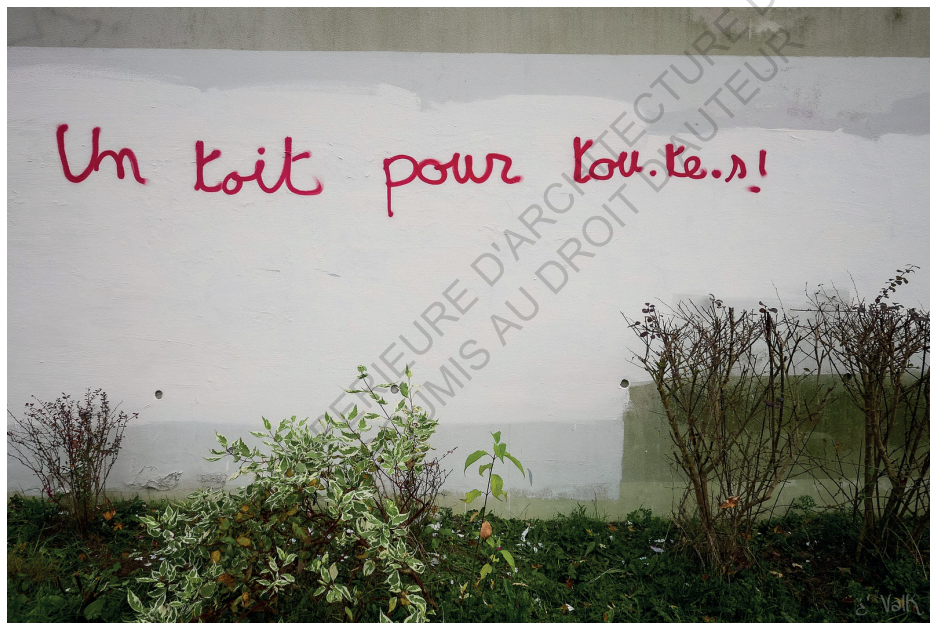 Un toit pour tou.te.s!
ERIEURE D'ARCHITECTURE D
UMIS AU DROIT D'AUTEUR
Valk